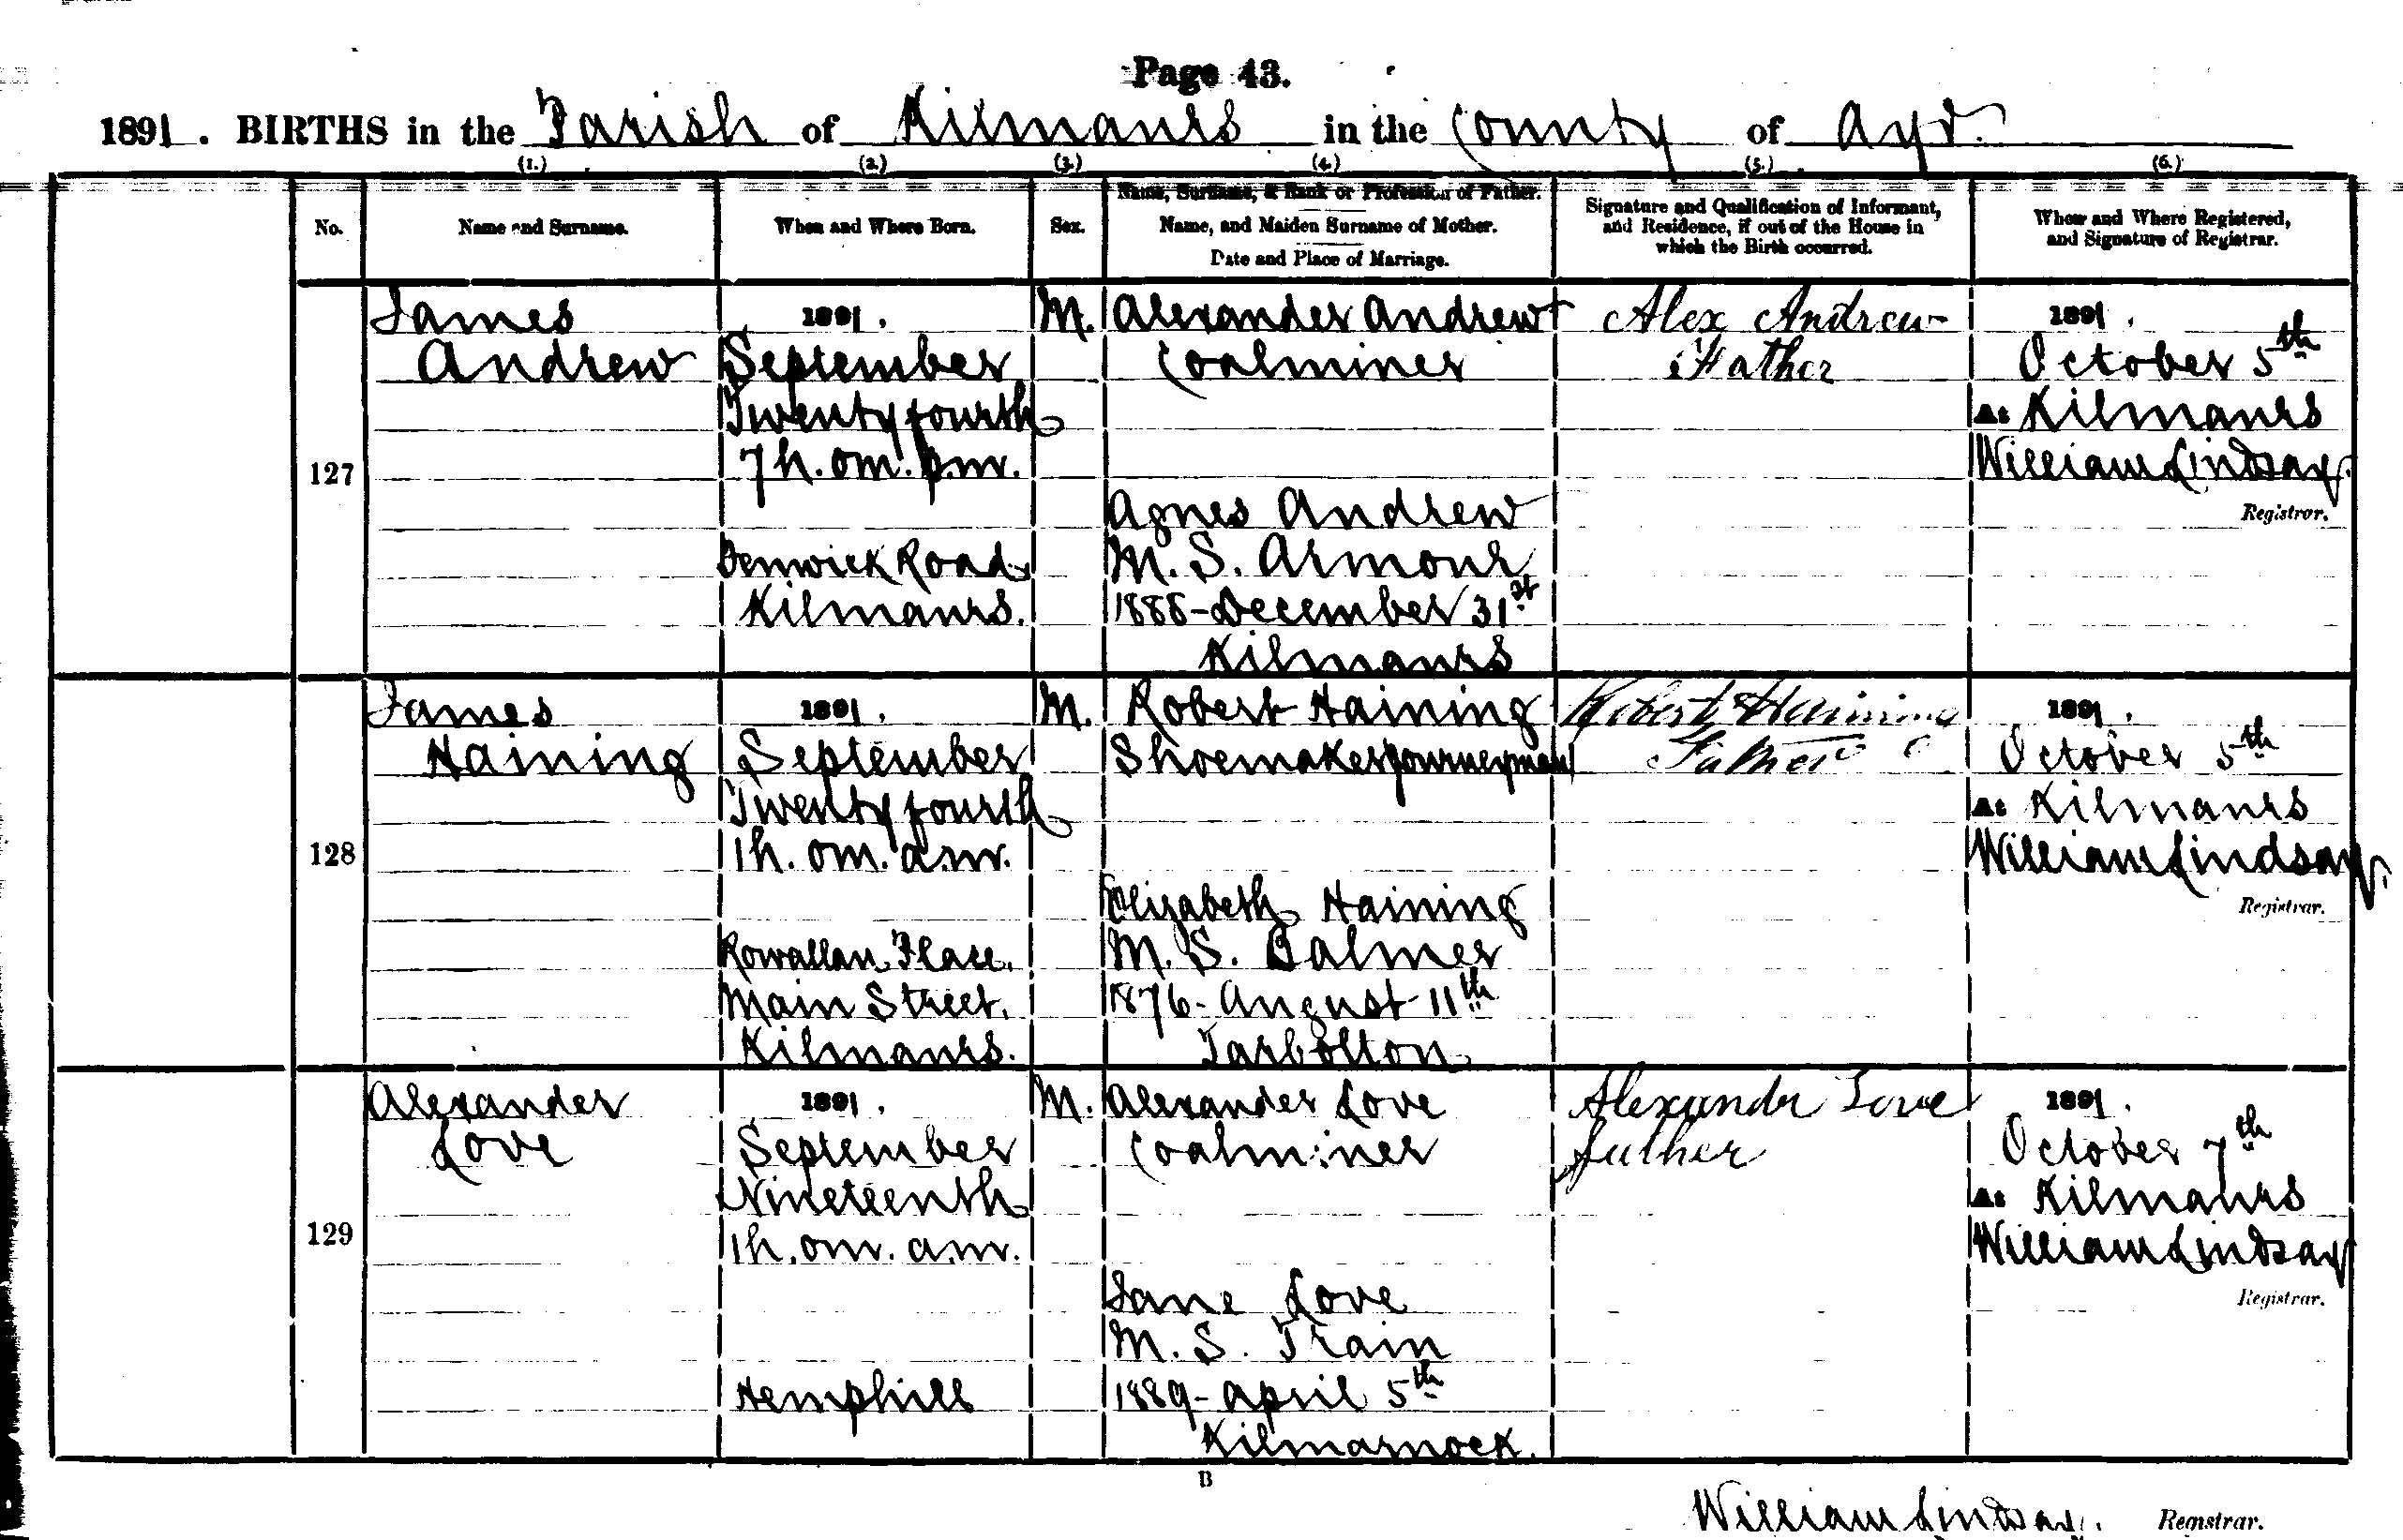 Page 43.
1891. BIRTHS in the Parish of Kilmaurs in the County of Ayr.
(1.) (2.) (3.) (4.) (5.) (6.)
No.
Name and Surname.
When and Where Born.
Sex.
Name, Surname, & Rank or Profession of Father.
Name, and Maiden Surname of Mother.
Date and Place of Marriage.
Signature and Qualification of Informant,
and Residence, if out of the House in
which the Birth occurred.
When and Where Registered,
and Signature of Registrar.
127
James
Andrew
1891.
September
Twenty fourth
7h. 0m. p.m.
Fenwick Road
Kilmaurs.
M.
Alexander Andrew
Coalminer
Agnes Andrew
M. S. Armour
1888-December 31st
Kilmaurs
Alex Andrew
Father
1891.
October 5th
At Kilmaurs
William Lindsay.
Registrar.
128
James
Haining
1891.
September
Twenty fourth
1h. 0m. a.m.
Rowallan Place.
Main Street.
Kilmaurs.
M.
Robert Haining
Shoemaker journeyman
Elizabeth Haining
M. S. Balmer
1876-August 11th
Tarbolton
Robert Haining
Father
1891.
October 5th
At Kilmaurs
William Lindsay.
Registrar.
129
Alexander
Love
1891.
September
Nineteenth
1h. 0m. a.m.
Hemphill
M.
Alexander Love
Coalminer
Jane Love
M. S. Train
1889-April 5th
Kilmarnock.
Alexander Love
father
1891.
October 7th
At Kilmaurs
William Lindsay
Registrar.
B
William Lindsay. Registrar.